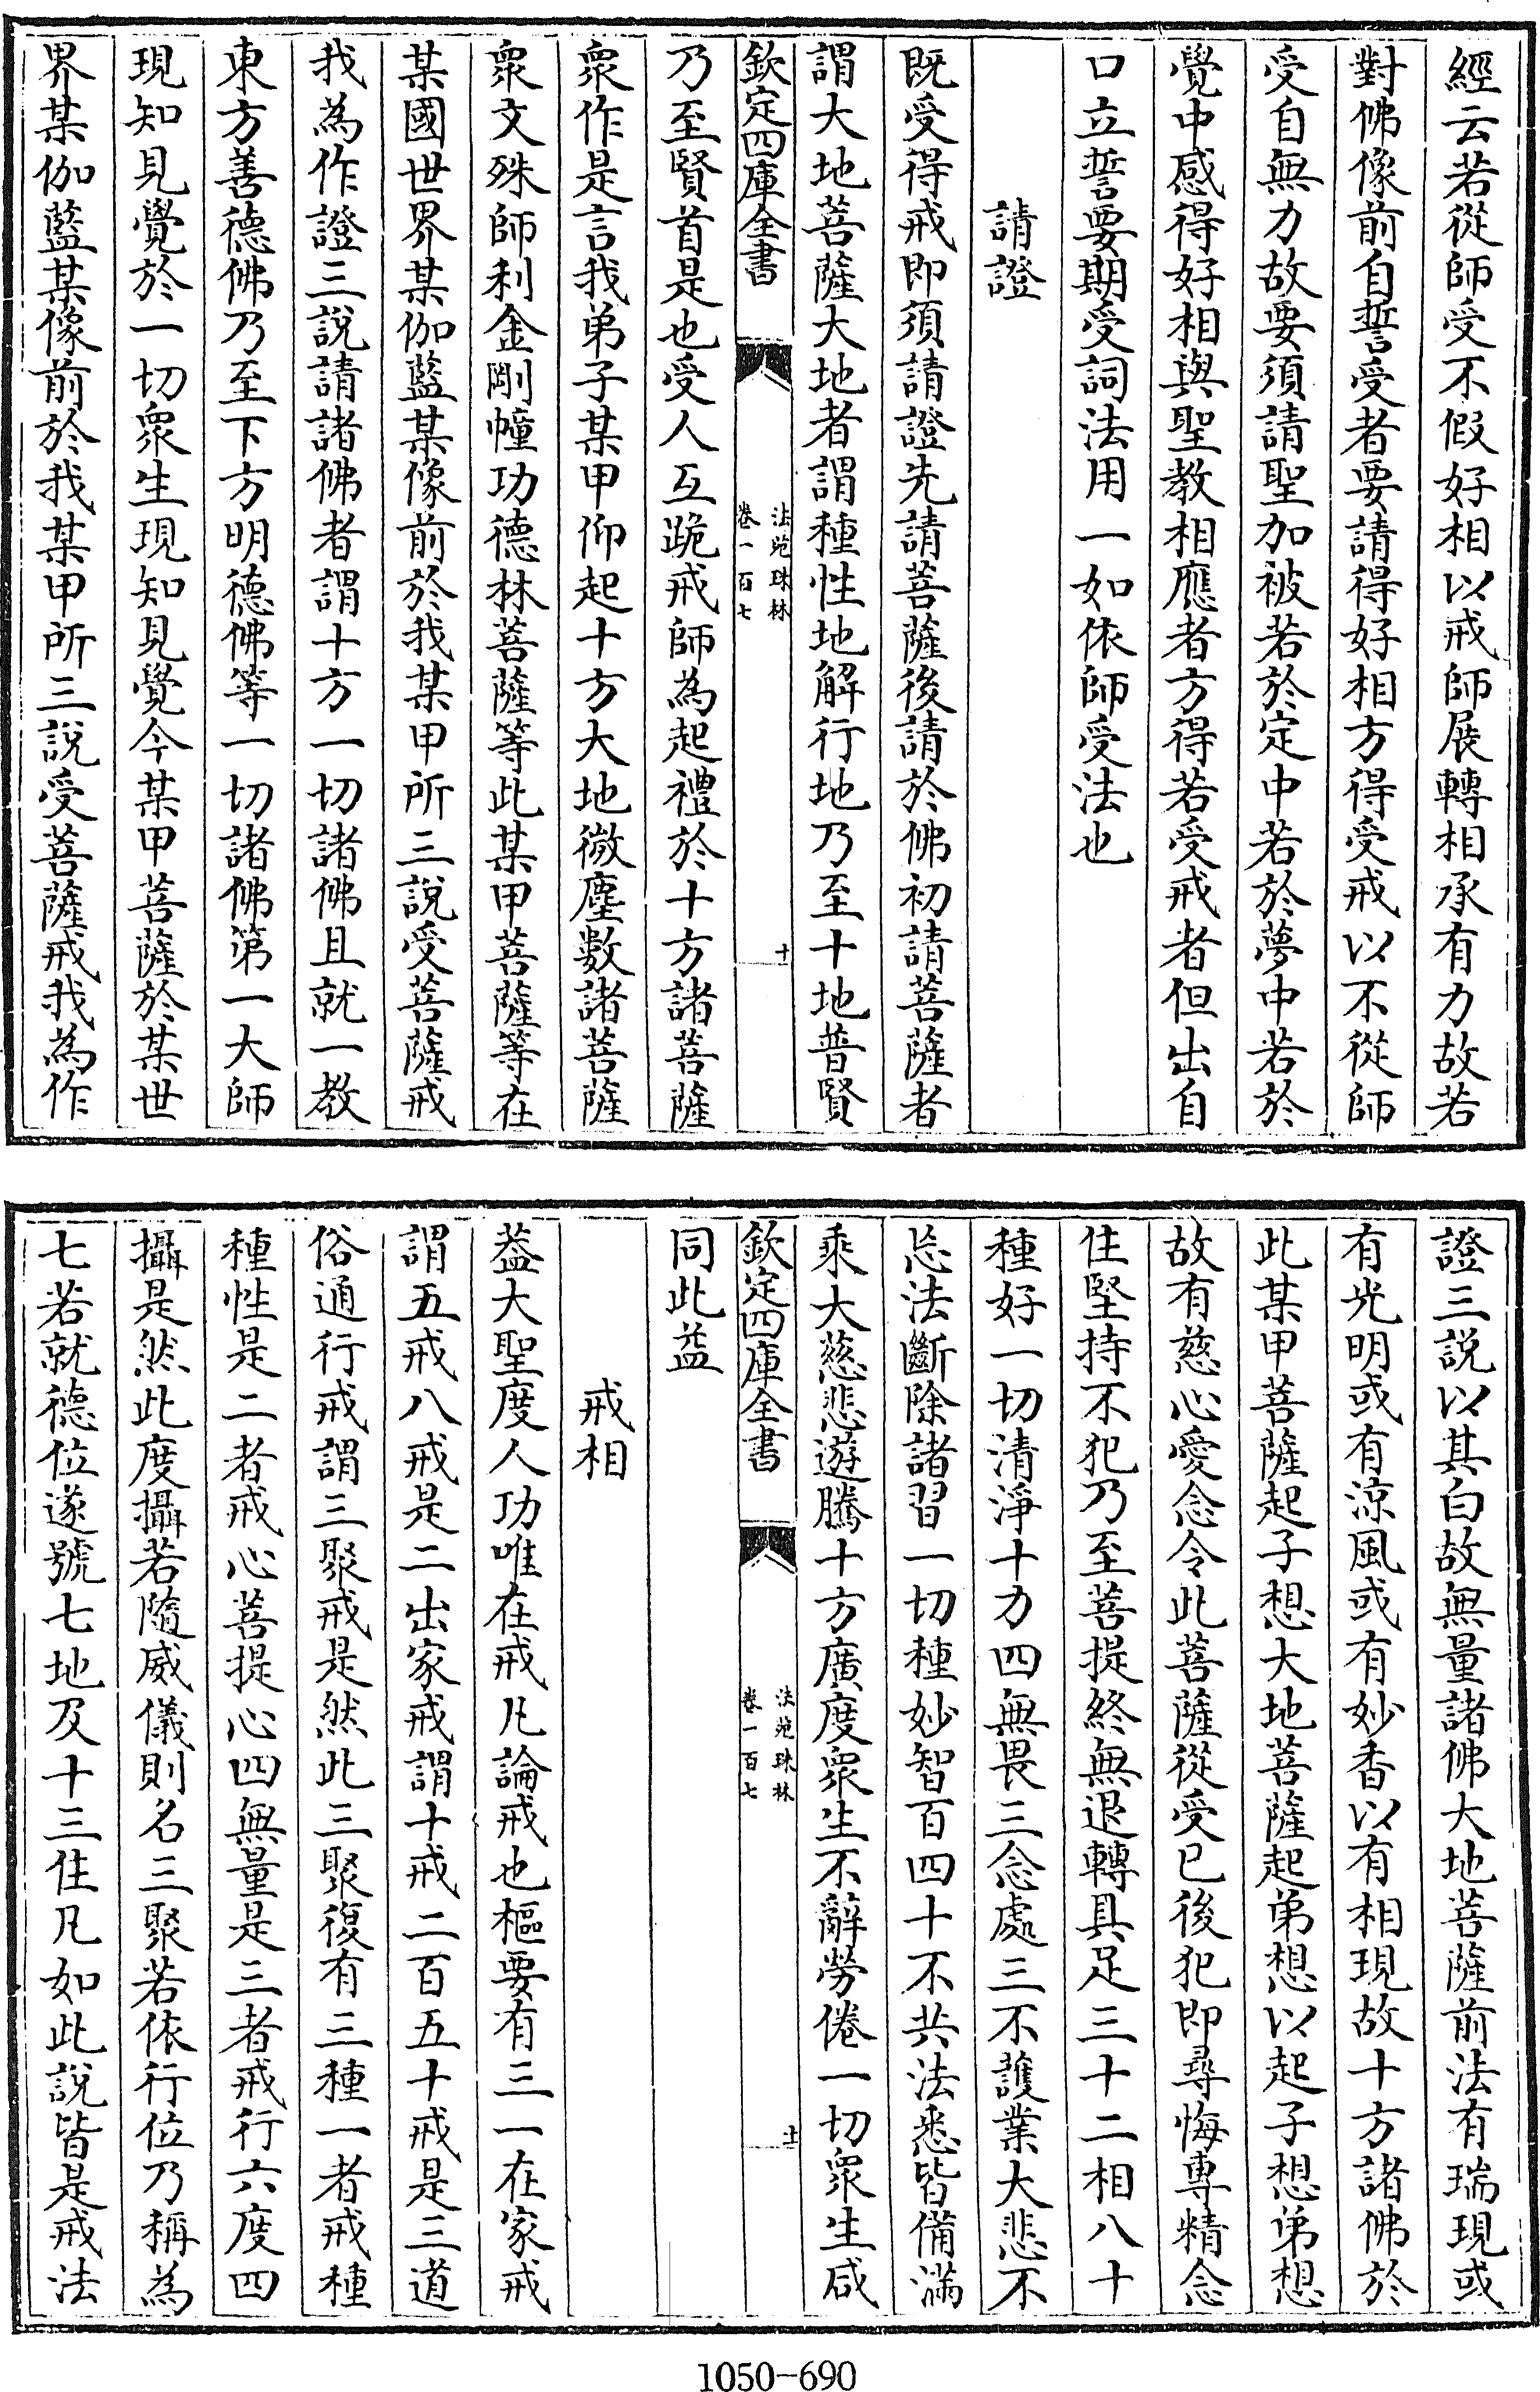 經云若從師受不假好相以戒師展轉相承有力故若
對佛像前自誓受者要請得好相方得受戒以不從師
受自無力故要須請聖加被若於定中若於夢中若於
覺中感得好相與聖教相應者方得若受戒者但出自
口立誓要期受詞法用一如依師受法也
請證
既受得戒即須請證先請菩薩後請於佛初請菩薩者
謂大地菩薩大地者謂種性地解行地乃至十地普賢
欽定四庫全書
法苑珠林
卷一百七
十
乃至賢首是也受人互跪戒師為起禮於十方諸菩薩
衆作是言我弟子某甲仰起十方大地微塵數諸菩薩
衆文殊師利金剛幢功德林菩薩等此某甲菩薩等在
某國世界某伽藍某像前於我某甲所三說受菩薩戒
我為作證三說請諸佛者謂十方一切諸佛且就一教
東方善德佛乃至下方明德佛等一切諸佛第一大師
現知見覺於一切衆生現知見覺今某甲菩薩於某世
界某伽藍某像前於我某甲所三說受菩薩戒我為作
證三說以其白故無量諸佛大地菩薩前法有瑞現或
有光明或有涼風或有妙香以有相現故十方諸佛於
此某甲菩薩起子想大地菩薩起弟想以起子想弟想
故有慈心愛念令此菩薩從受已後犯即尋悔專精念
住堅持不犯乃至菩提終無退轉具足三十二相八十
種好一切清淨十力四無畏三念處三不護業大悲不
忘法斷除諸習一切種妙智百四十不共法悉皆備滿
乘大慈悲遊騰十方廣度衆生不辭勞倦一切衆生咸
欽定四庫全書
法苑珠林
卷一百七
十一
同此益
戒相
蓋大聖度人功唯在戒凡論戒也樞要有三一在家戒
謂五戒八戒是二出家戒謂十戒二百五十戒是三道
俗通行戒謂三聚戒是然此三聚復有三種一者戒種
種性是二者戒心菩提心四無量是三者戒行六度四
攝是然此度攝若隨威儀則名三聚若依行位乃稱為
七若就德位遂號七地及十三住凡如此說皆是戒法
1050-690